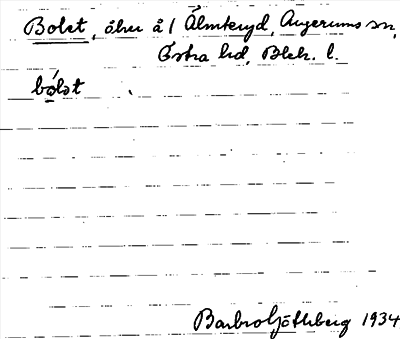 Bolet, åker å 1 Älmteryd, Augerums sn,
Östra hd, Blek. l.
bo̯lət
Barbro Götlberg 1934